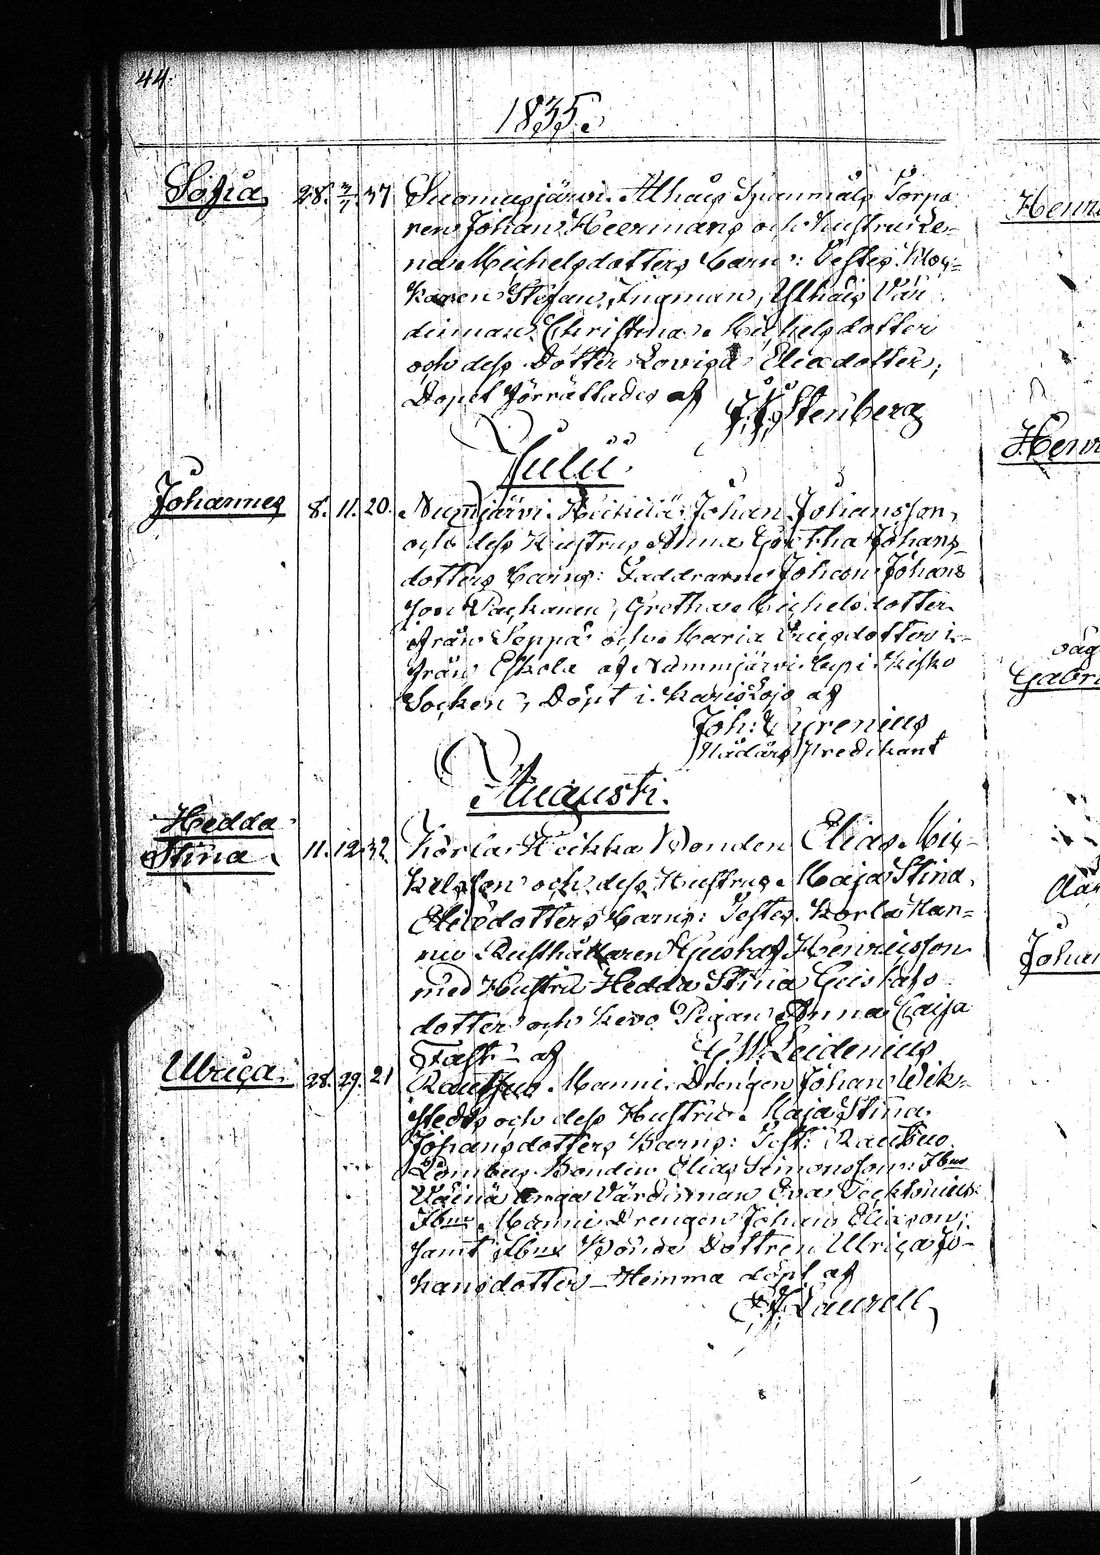 44.
1835.
Sofia 28. 3/7 37 Suomusjärvi Ahais Torpa
ren Johan Heermans och hustru Le-
na Michelsdotters barn: Testes: Kloc-
karen Stefan Ingman, Ahais Vär
dinnan Christina Michelsdotter
och dess Dotter Lovisa Eliædotter,
Dopet förrättades af
Stenberg
Julii
Johannes 8. 11. 20. Nummjärvi Heikilä Johan Johansson,
och dess Hustrus Anna Gretha Johans-
dotters Barns: Faddrarne Johan Johans
son Gretha Michelsdotter
från Seppä och Maria
från Eskola af Nummjärvi i Kisko
Socken, Döpt i Karislojo af
Joh: Cyrenius
Nådårs Predikant
Augusti.
Hedda
Stina 11. 12. 32. Korla Heikka Bonden Elias Mic-
kelsson och dess Hustrus Maja Stina
Eliædotters Barns: Testes Korla Han-
nu Rusthållaren Gustaf Henricsson
med Hustru Hedda Stina Gustafs
dotter och Pigan Anna Caisa
af
Leidenius
Ulrica 28. 29. 21 Rautsuo Manni Drengen Johan Wik-
stedts och dess Hustru Maja Stina
Johansdotters Barns: Test: Rautsuo
Bonden Elias Simonsson: Ibm
Väinä unga Värdinnan Eva
Ibm Manni Drengen Johan Eliæson;
samt Ibm Bonde Dottren Ulrica Jo-
hansdotter Hemma döpt af
Laurell
Henr
Henr
Gabri
Johan